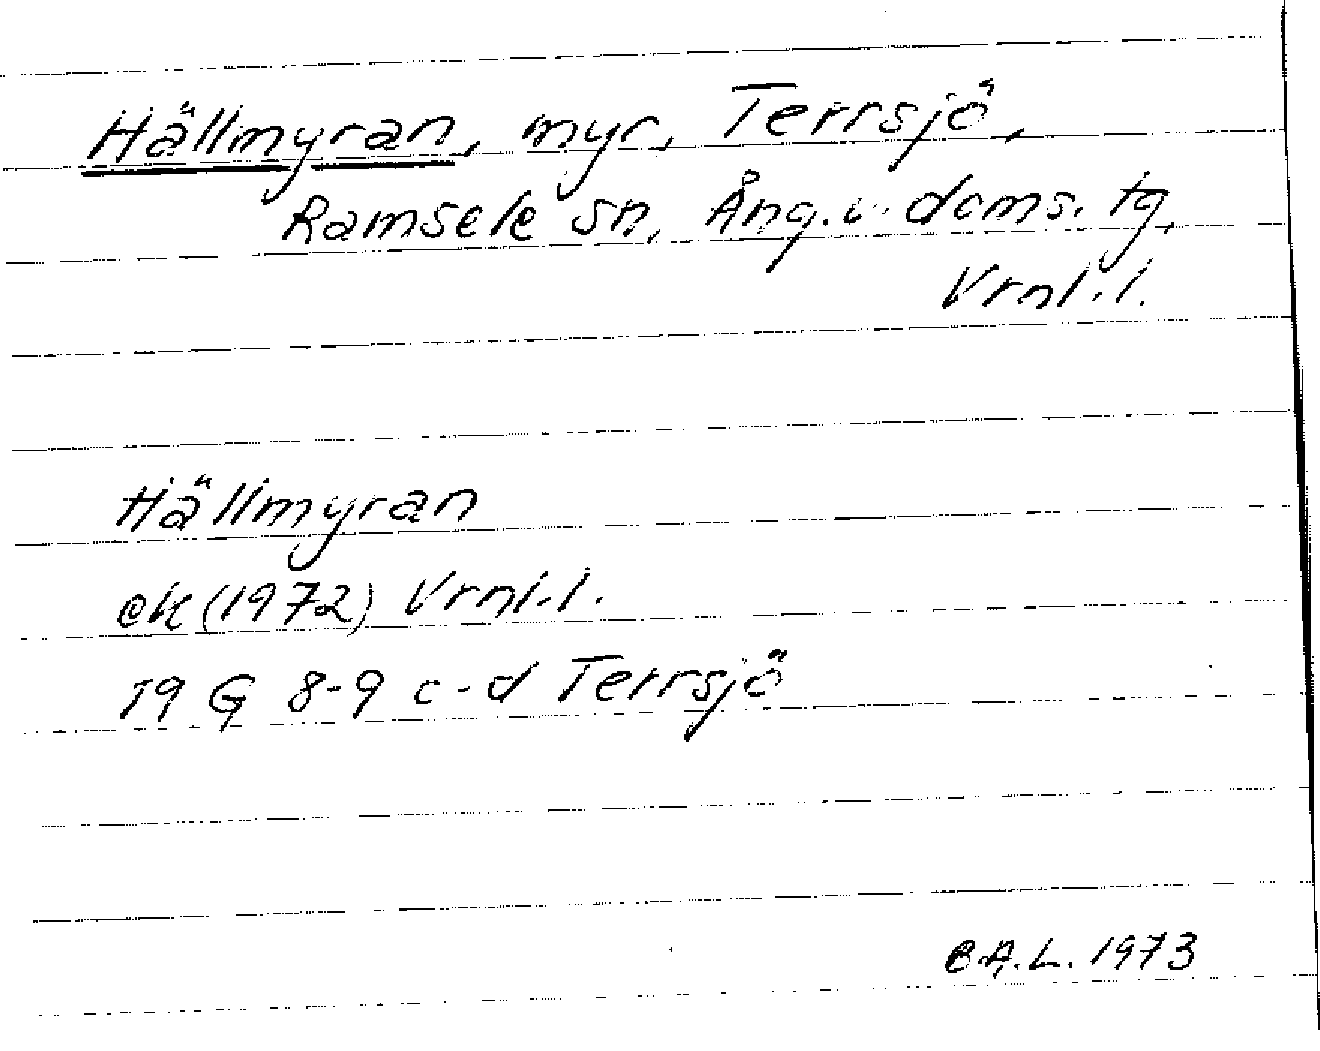 Hällmyran, myr, Terrsjö,
Ramsele sn, Ång. v. doms. tg,
Vrnl. l.
Hällmyran
ek (1972) Vrnl. l.
19 G 8-9 c-d Terrsjö
C.A.L. 1973